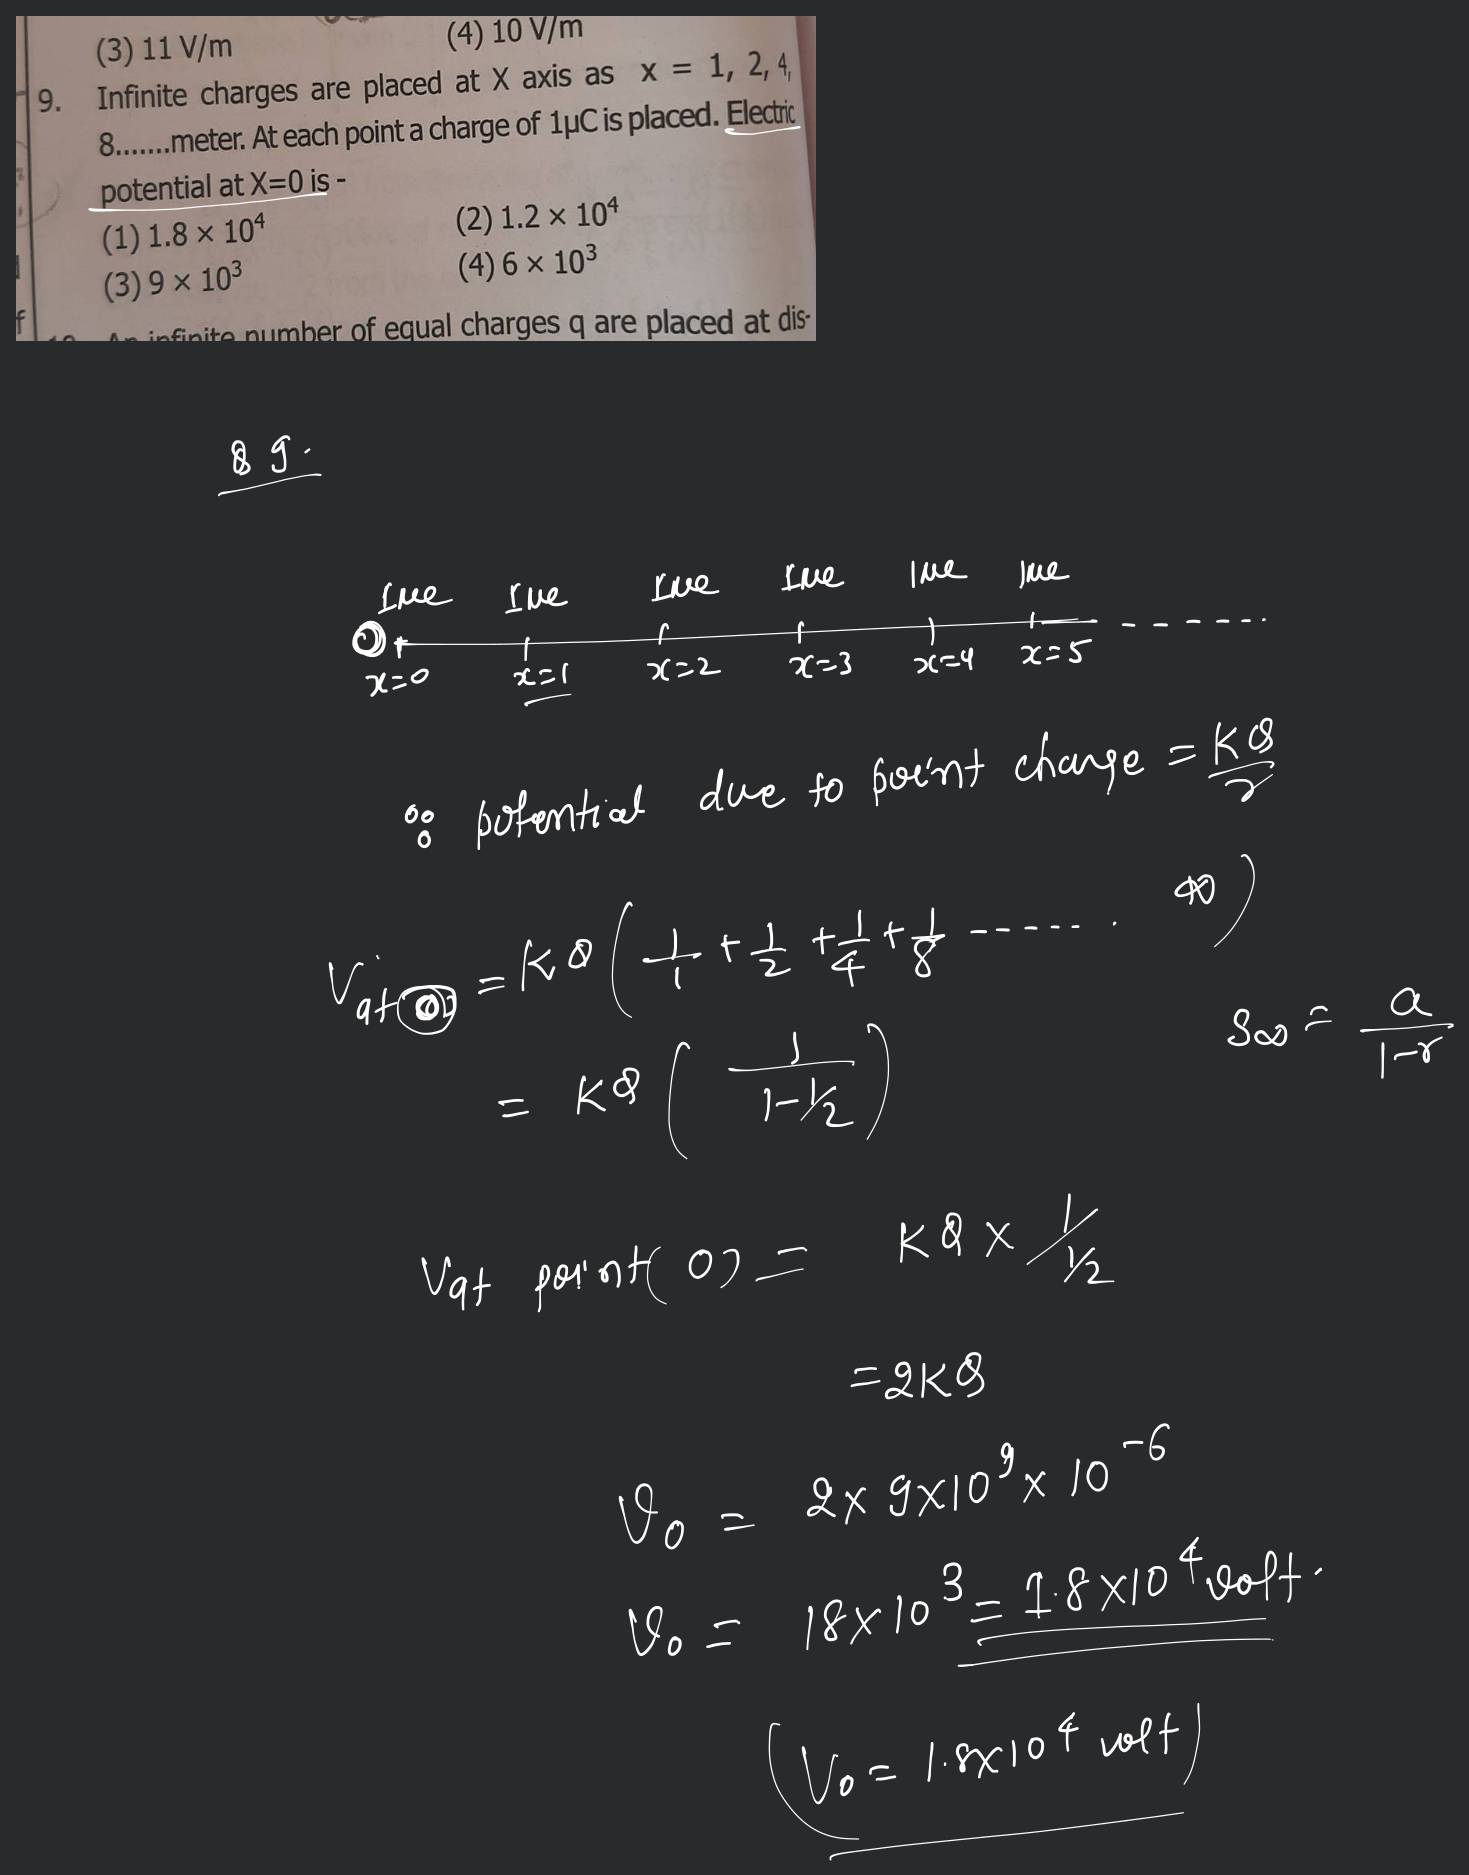 (3) 11 V/m (4) 10 V/m
9. Infinite charges are placed at X axis as x = 1, 2, 4,
8.......meter. At each point a charge of 1μC is placed. Electric
potential at X=0 is -
(1) 1.8 × 10⁴ (2) 1.2 × 10⁴
(3) 9 × 10³ (4) 6 × 10³
An infinite number of equal charges q are placed at dis-
Q 9.
1μC 1μC 1μC 1μC 1μC 1μC
O
x=0 x=1 x=2 x=3 x=4 x=5
∵ potential due to point change = KQ/r
V at O = KQ (1/1 + 1/2 + 1/4 + 1/8 ------ . ∞)
S∞ = a/(1-r)
= KQ (1/(1-1/2))
V at point (O) = KQ × 1/(1/2)
= 2KQ
V₀ = 2× 9×10⁹ × 10⁻⁶
V₀ = 18×10³ = 1.8×10⁴ volt.
(V₀ = 1.8×10⁴ volt)